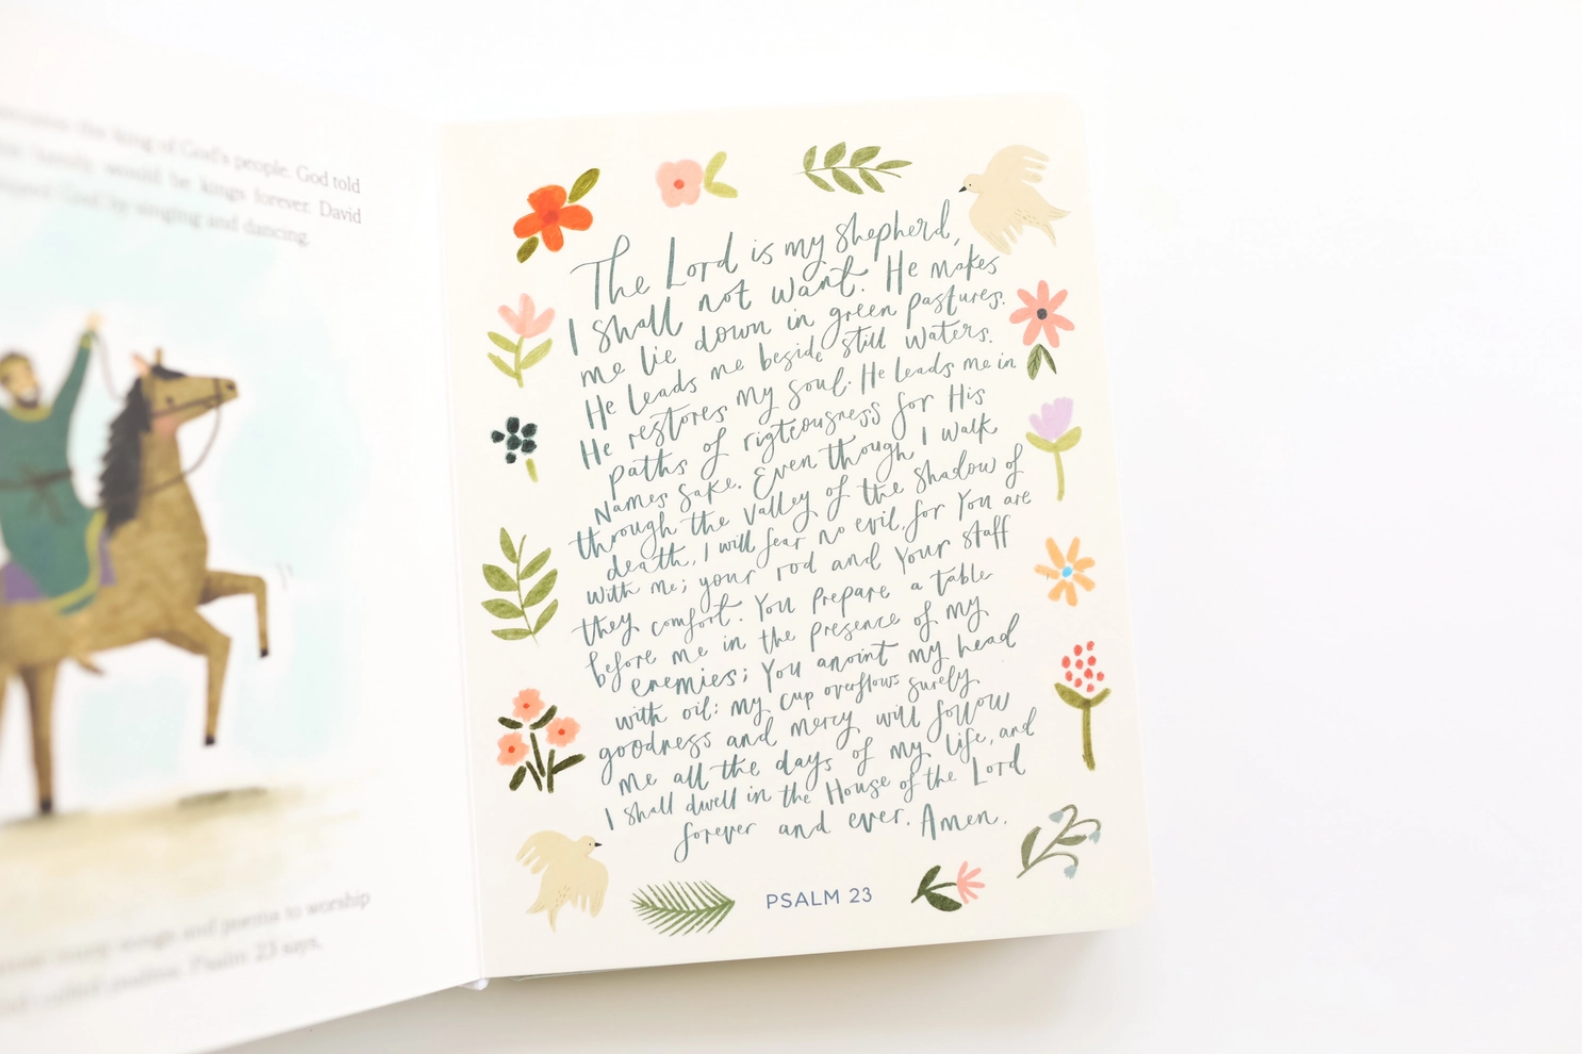 the king of God's people. God told
family would be kings forever. David
God by singing and dancing.
many songs and poems to worship
called psalms. Psalm 23 says,
The Lord is my shepherd,
I shall not want. He makes
me lie down in green pastures.
He leads me beside still waters.
He restores my soul. He leads me in
paths of rigteousness for His
Names sake. Even though I walk
through the valley of the shadow of
death, I will fear no evil, for You are
with me; your rod and Your staff
they comfort. You prepare a table
before me in the presence of my
enemies; You anoint my head
with oil; my cup overflows surely
goodness and mercy will follow
me all the days of my life, and
I shall dwell in the House of the Lord
forever and ever. Amen.
PSALM 23